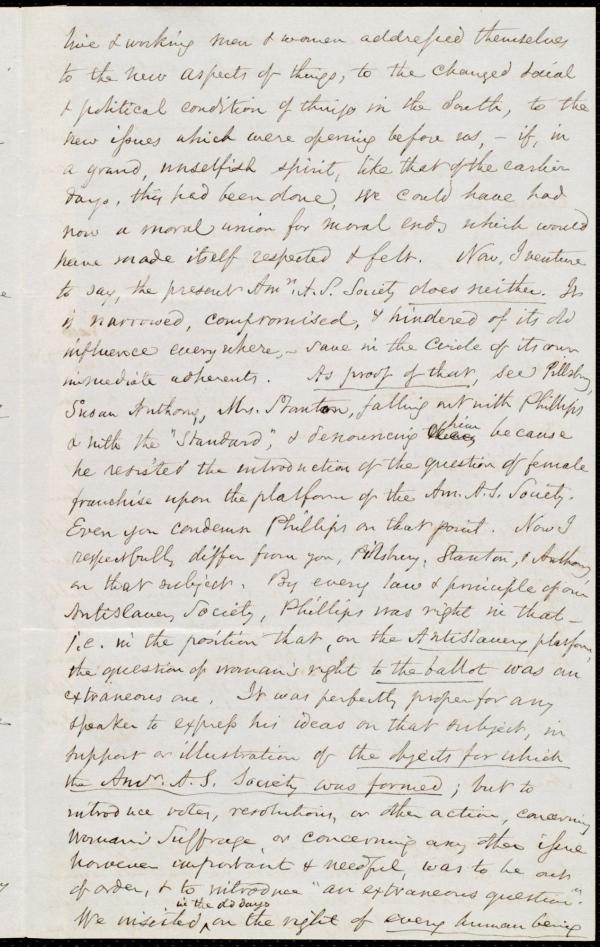 tive & working men & women addressed themselves
to the new aspects of things, to the changed social
& political condition of things in the South, to the
new issues which were opening before us, – if, in
a grand, unselfish spirit, like that of the earlier
days, this had been done, we could have had
now a moral union for moral ends which would
have made itself respected & felt. Now, I venture
to say, the present Amn. A. S. Society does neither. It
is narrowed, compromised, & hindered of its old
influence everywhere, – save in the circle of its own
immediate adherents. As proof of that, see Pillsbury,
Susan Anthony, Mrs. Stanton, falling out with Phillips
& with the "Standard", & denouncing him because
he resisted the introduction of the question of female
franchise upon the platform of the Am. A. S. Society.
Even you condemn Phillips on that point. Now I
respectfully differ from you, Pillsbury, Stanton, & Anthony,
on that subject. By every law & principle of our
Antislavery Society, Phillips was right in that –
i.e. in the position that, on the Antislavery platform,
the question of woman's right to the ballot was an
extraneous one. It was perfectly proper for any
speaker to express his ideas on that subject, in
support or illustration of the objects for which
the Amn. A. S. Society was formed; but to
introduce votes, resolutions, or other action, concerning
Woman's Suffrage, or concerning any other issue
however important & needful, was to be out
of order, & to introduce "an extraneous question".
in the old days
We insisted, on the right of every human being